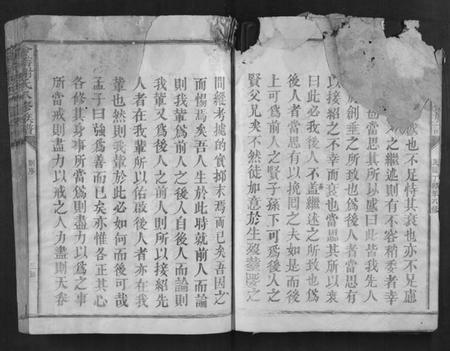 欲也不足恃其衰也亦不足慮
之繼述則有不容稍委者幸
也當思其所以盛曰此皆我先人
創垂之所致也為後人者當思有
以接紹之不幸而衰也當思其所以衰
曰此必我後人不善繼述之所致也為
後人者當思有以挽回之夫如是而後
上可為前人之賢子孫下可為後人之
賢父兄矣不然徒如意於生
間經考據的實擲末焉而已矣吾因之
而惕焉矣吾人生於此時就前人而論
則我輩為前人之後人自後人而論則
我輩又為後人之前人則所以接紹先
人者在我輩所以佑啟後人者亦在我
輩也然則我輩於此必如何而後可哉
孟子曰強為善而已矣亦惟各正其心
各修其身事所當為則盡力以為之事
所當戒則盡力以戒之人力盡則天眷